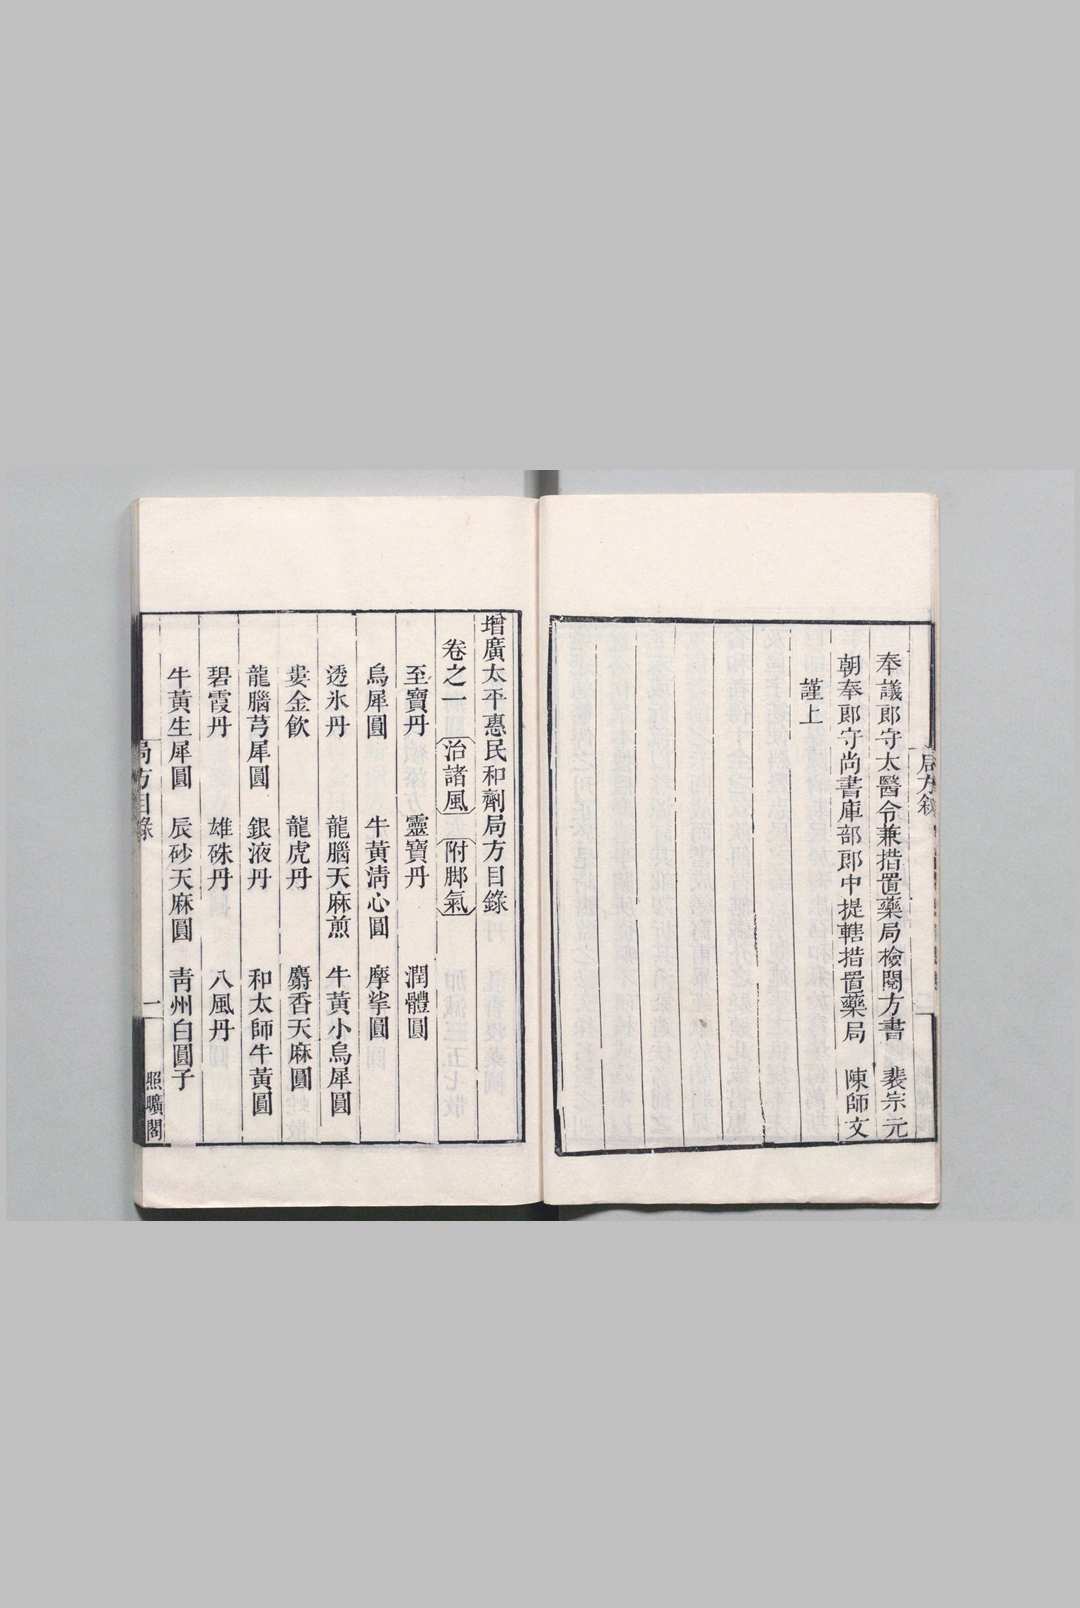 奉議郎守太醫令兼措置藥局檢閱方書　裴宗元
朝奉郎守尚書庫部郎中提轄措置藥局　陳師文
謹上
局方敘
增廣太平惠民和劑局方目錄
卷之一 治諸風 附脚氣
至寶丹 靈寶丹 潤體圓
烏犀圓 牛黃淸心圓 摩挲圓
透氷丹 龍腦天麻煎 牛黃小烏犀圓
婁金飮 龍虎丹 麝香天麻圓
龍腦芎犀圓 銀液丹 和太師牛黃圓
碧霞丹 雄硃丹 八風丹
牛黃生犀圓 辰砂天麻圓 靑州白圓子
局方目錄 一 照曠閣